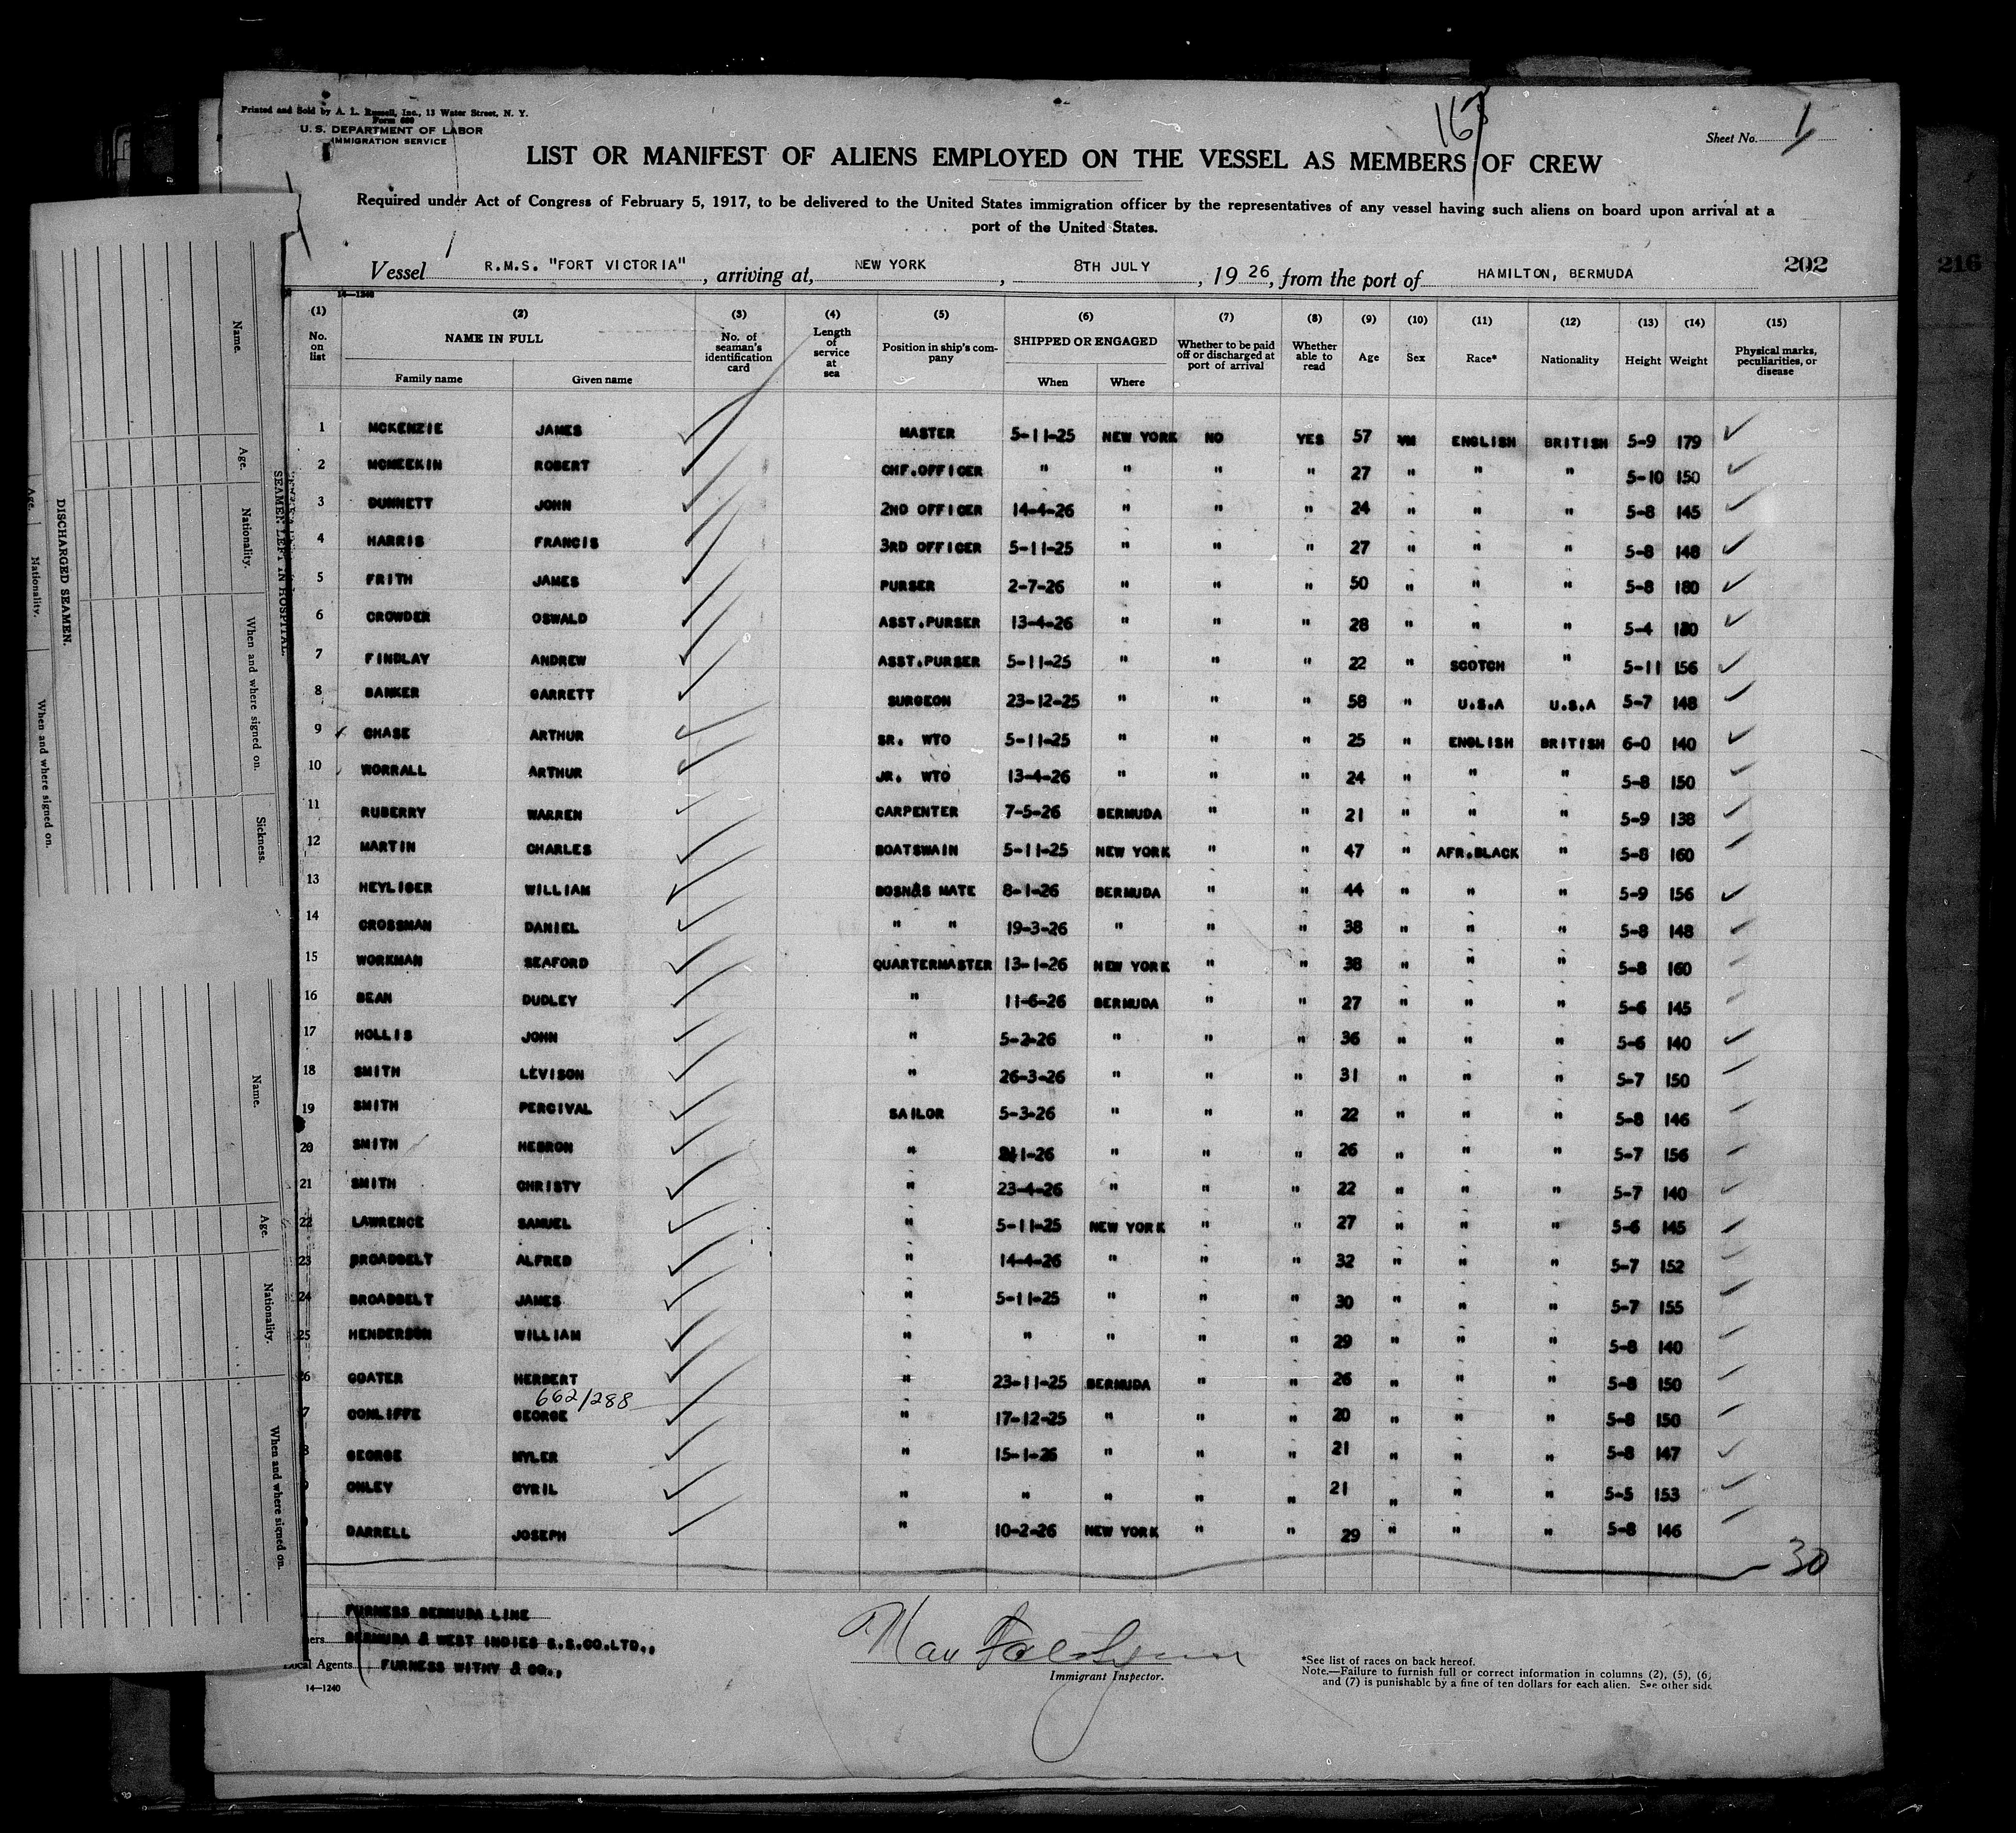 Printed and Sold by A. L. Russell, Inc., 13 Water Street, N. Y.
Form 689
U. S. DEPARTMENT OF LABOR
IMMIGRATION SERVICE
167
Sheet No. 1
LIST OR MANIFEST OF ALIENS EMPLOYED ON THE VESSEL AS MEMBERS OF CREW
Required under Act of Congress of February 5, 1917, to be delivered to the United States immigration officer by the representatives of any vessel having such aliens on board upon arrival at a
port of the United States.
Vessel R.M.S. "FORT VICTORIA", arriving at, NEW YORK, 8TH JULY, 19 26, from the port of HAMILTON, BERMUDA 202
216
14—1240
(1) (2) (3) (4) (5) (6) (7) (8) (9) (10) (11) (12) (13) (14) (15)
No. on list NAME IN FULL No. of seaman's identification card Length of service at sea Position in ship's company SHIPPED OR ENGAGED Whether to be paid off or discharged at port of arrival Whether able to read Age Sex Race* Nationality Height Weight Physical marks, peculiarities, or disease
Family name Given name When Where
1 MCKENZIE JAMES MASTER 5-11-25 NEW YORK NO YES 57 M ENGLISH BRITISH 5-9 179
2 MCMEEKIN ROBERT CHF.OFFICER " " " " 27 " " " 5-10 150
3 DUNNETT JOHN 2ND OFFICER 14-4-26 " " " 24 " " " 5-8 145
4 HARRIS FRANCIS 3RD OFFICER 5-11-25 " " " 27 " " " 5-8 148
5 FRITH JAMES PURSER 2-7-26 " " " 50 " " " 5-8 180
6 CROWDER OSWALD ASST.PURSER 13-4-26 " " " 28 " " " 5-4 130
7 FINDLAY ANDREW ASST.PURSER 5-11-25 " " " 22 " SCOTCH " 5-11 156
8 BANKER GARRETT SURGEON 23-12-25 " " " 58 " U.S.A U.S.A 5-7 148
9 CHASE ARTHUR SR. WTO 5-11-25 " " " 25 " ENGLISH BRITISH 6-0 140
10 WORRALL ARTHUR JR. WTO 13-4-26 " " " 24 " " " 5-8 150
11 RUBERRY WARREN CARPENTER 7-5-26 BERMUDA " " 21 " " " 5-9 138
12 MARTIN CHARLES BOATSWAIN 5-11-25 NEW YORK " " 47 " AFR.BLACK " 5-8 160
13 HEYLIGER WILLIAM BOSN&S MATE 8-1-26 BERMUDA " " 44 " " " 5-9 156
14 CROSSMAN DANIEL " " 19-3-26 " " " 38 " " " 5-8 148
15 WORKMAN SEAFORD QUARTERMASTER 13-1-26 NEW YORK " " 38 " " " 5-8 160
16 BEAN DUDLEY " 11-6-26 BERMUDA " " 27 " " " 5-6 145
17 HOLLIS JOHN " 5-2-26 " " " 36 " " " 5-6 140
18 SMITH LEVISON " 26-3-26 " " " 31 " " " 5-7 150
19 SMITH PERCIVAL SAILOR 5-3-26 " " " 22 " " " 5-8 146
20 SMITH HEBRON " 1-26 " " " 26 " " " 5-7 156
21 SMITH CHRISTY " 23-4-26 " " " 22 " " " 5-7 140
22 LAWRENCE SAMUEL " 5-11-25 NEW YORK " " 27 " " " 5-6 145
23 BROADBELT ALFRED " 14-4-26 " " " 32 " " " 5-7 152
24 BROADBELT JAMES " 5-11-25 " " " 30 " " " 5-7 155
25 HENDERSON WILLIAM " " " " " 29 " " " 5-8 140
6 GOATER HERBERT " 23-11-25 BERMUDA " " 26 " " " 5-8 150
662/288
7 CONLIFFE GEORGE " 17-12-25 " " " 20 " " " 5-8 150
8 GEORGE MYLER " 15-1-26 " " " 21 " " " 5-8 147
ONLEY CYRIL " " " " " 21 " " " 5-5 153
DARRELL JOSEPH " 10-2-26 NEW YORK " " 29 " " " 5-8 146
30
FURNESS BERMUDA LINE
ers BERMUDA & WEST INDIES S.S.CO.LTD.,
Local Agents FURNESS WITHY & CO.,
14—1240
Immigrant Inspector.
*See list of races on back hereof.
Note.—Failure to furnish full or correct information in columns (2), (5), (6)
and (7) is punishable by a fine of ten dollars for each alien. See other side
SEAMEN LEFT IN HOSPITAL.
Name. Age. Nationality. When and where signed on. Sickness.
DISCHARGED SEAMEN.
Age. Nationality. When and where signed on.
Name. Age. Nationality. When and where signed on.